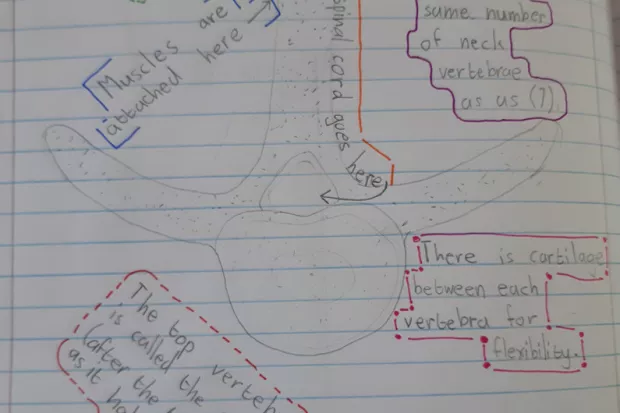 same number
of neck
vertebrae
as us (7)
Muscles are
attached here
spinal cord goes
here
There is cartilage
between each
vertebra for
flexibility.
The top verteb
is called the
(after the
as it